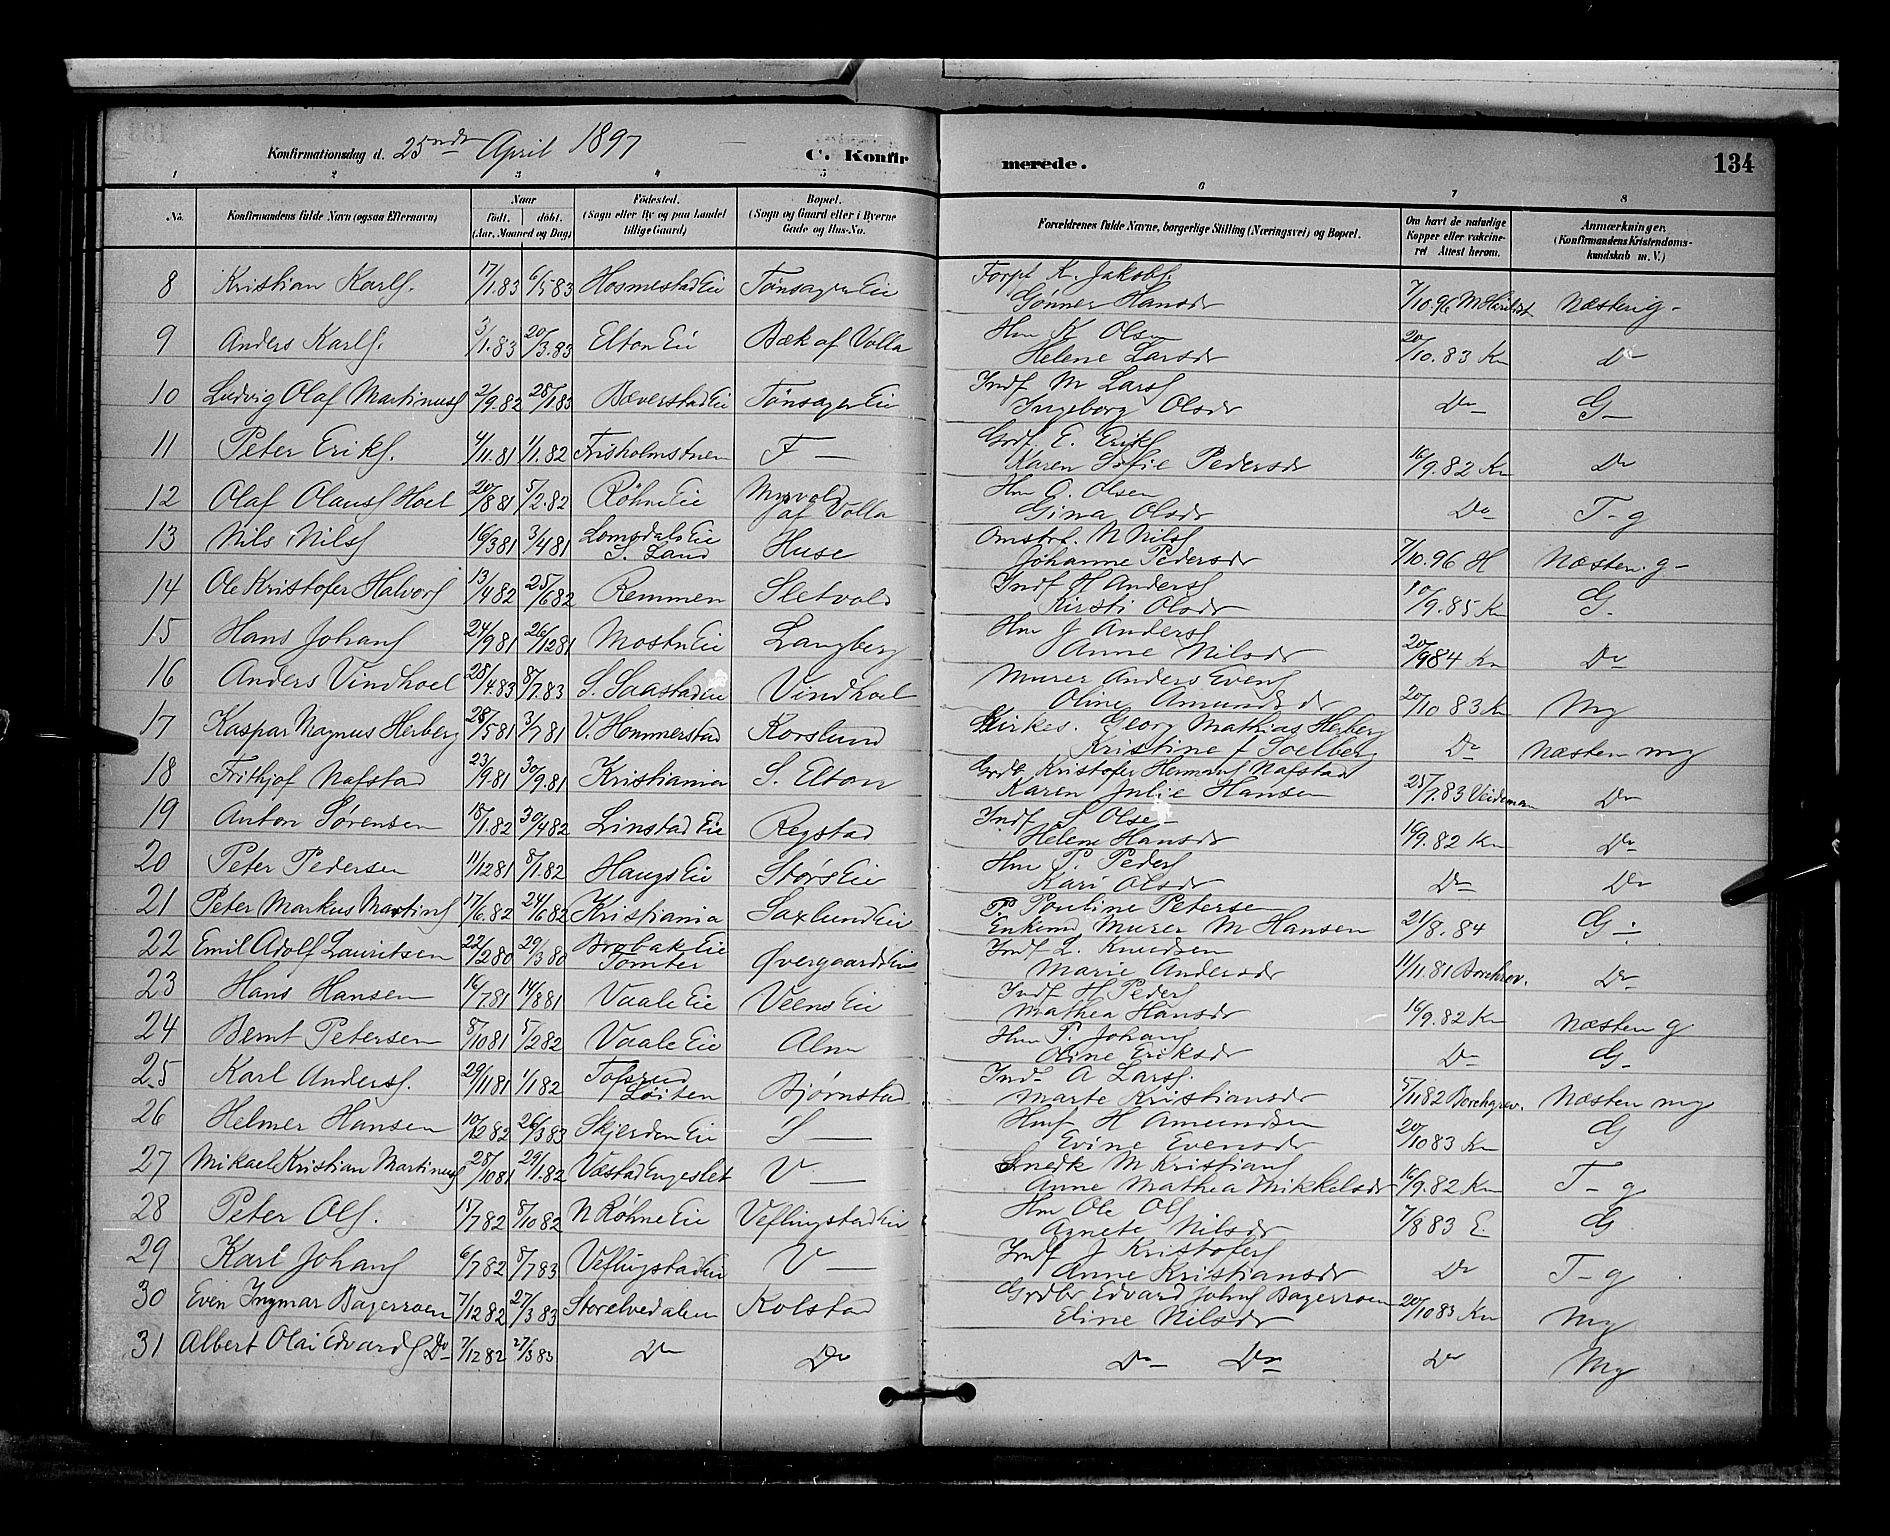 Konfirmationsdag d. 25nde April 1897 C. Konfirmerede. 134
1 2 3 4 5 6 7 8
No. Konfirmandens fulde Navn (ogsaa Efternavn) Naar født. døbt. (Aar, Maaned og Dag) Fødested. (Sogn eller By og paa Landet tillige Gaard) Bopæl. (Sogn og Gaard eller i Byerne Gade og Hus-No. Forældrenes fulde Navne, borgerlige Stilling (Næringsvei) og Bopæl. Om havt de naturlige Kopper eller vakcineret Attest herom. Anmærkninger. (Konfirmandens Kristendomskundskab m. V.)
8 Kristian Karls. 17/1.83 6/5 83 Hosmestad Eie Tønsager Eie Forpt K. Jakobs. Gønner Hansdr 7/10.96 Næsten g-
9 Anders Karls. 3/1.83 20/3.83 Elton Eie Bæk af Volla Hm K Olsen Helene Larsdr 20/10.83 Kn Do
10 Ludvig Olaf Martinus 2/9.82 28/1 83 Bæverstad Eie Tønsager Eie Indf M Lars Ingeborg Olsdr Do G-
11 Peter Eriks. 4/11.81 1/1.82 Frisholmstuen F- Grdf. E. Eriks Karen Sofie Pedersdr 16/9.82 Kn Do
12 Olaf Olaus Hoel 20/8 81 5/2.82 Røhne Eie Myrvold af Volla Hm O. Olsen Gina Olsdr Do T-g
13 Nils Nils 16/3 81 3/4 81 Lomsdals Eie S. Land Huse Omstrt. N Nils Johanne Pedersdr 7/10.96 H Næsten g-
14 Ole Kristofer Halvors 13/4 82 25/6 82 Remmen Sletvold Indf H Anders Kirsti Olsdr 10/9.85 Kn G.
15 Hans Johans 24/9 81 26/12 81 Mostu Eie Langberg Hm J Anders Anne Nilsdr 20/9 84 Kn Do
16 Anders Vindhoel 28/4.83 8/7.83 S. Saastad Eie Vindhoel Murer Anders Evens Oline Amundsdr 20/10 83 Kn Mg
17 Kaspar Magnus Herberg 28/5 81 3/7 81 V. Hommerstad Korslund Kirkes. Georg Mathias Herberg Kristine f Soelberg Do Næsten mg
18 Frithjof Nafstad 23/9.81 30/9.81 Kristiania S. Elton Grdb Kristofer Hermans Nafstad Karen Julie Hansen 25/7.83 Veideman Do
19 Anton Sørensen 18/1.82 30/4 82 Linstad Eie Regstad Indf S Olsen Helene Hansdr 16/9.82 Kn Do
20 Peter Pedersen 11/12 81 8/1.82 Haugs Eie Størs Eie Hm P. Peders Kari Olsdr Do Do
21 Peter Markus Martins 17/6.82 24/6 82 Kristiania Saxlund Eie P. Pouline Petersen Enkemd Murer M Hansen 21/8.84 G-
22 Emil Adolf Lauritsen 22/2 80 29/3 80 Brobak Eie Tomter Øvergaards Eie Indf L. Knudsen Marie Andersdr 11/11.81 Borchgrev. Do
23 Hans Hansen 16/7 81 14/8 81 Vaale Eie Veens Eie Indf H Peders Mathea Hansdr 16/9.82 Kn Næsten g
24 Bernt Petersen 8/10 81 5/2 82 Vaale Eie Alm Hm P. Johans Oline Eriksdr Do G-
25 Karl Anders. 29/11 81 1/1 82 Tofsrud Løiten Bjørnstad Ind- A Lars. Marte Kristiansdr 5/11 82 Borchgrev. Næsten mg
26 Helmer Hansen 10/12 82 26/3 83 Skjerden Eie S- Hmf H Amundsen Evine Evensdr 20/10 83 Kn G
27 Mikael Kristian Martinus 28/10 81 29/1.82 Væstadengeslet V- Snedk M Kristians Anne Mathea Mikkelsdr 16/9.82 Kn T-g
28 Peter Ols. 15/7 82 8/10 82 N Røhne Eie Veflingstad Eie Hm Ole Ols Agnete Nilsdr 7/8 83 E. G
29 Karl Johans 6/7 82 8/7 83 Veflingstad Eie V- Indf J Kristofers Anne Kristiansdr Do T-g
30 Even Ingmar Bagerroen 7/12 82 27/3 83 Storelvedalen Kolstad Grdbr Edvard Johns Bagerroen Eline Nilsdr 20/10 83 Kn Mg
31 Albert Olai Edvards Do 7/12 82 27/3 83 Do Do Do Do Do Mg